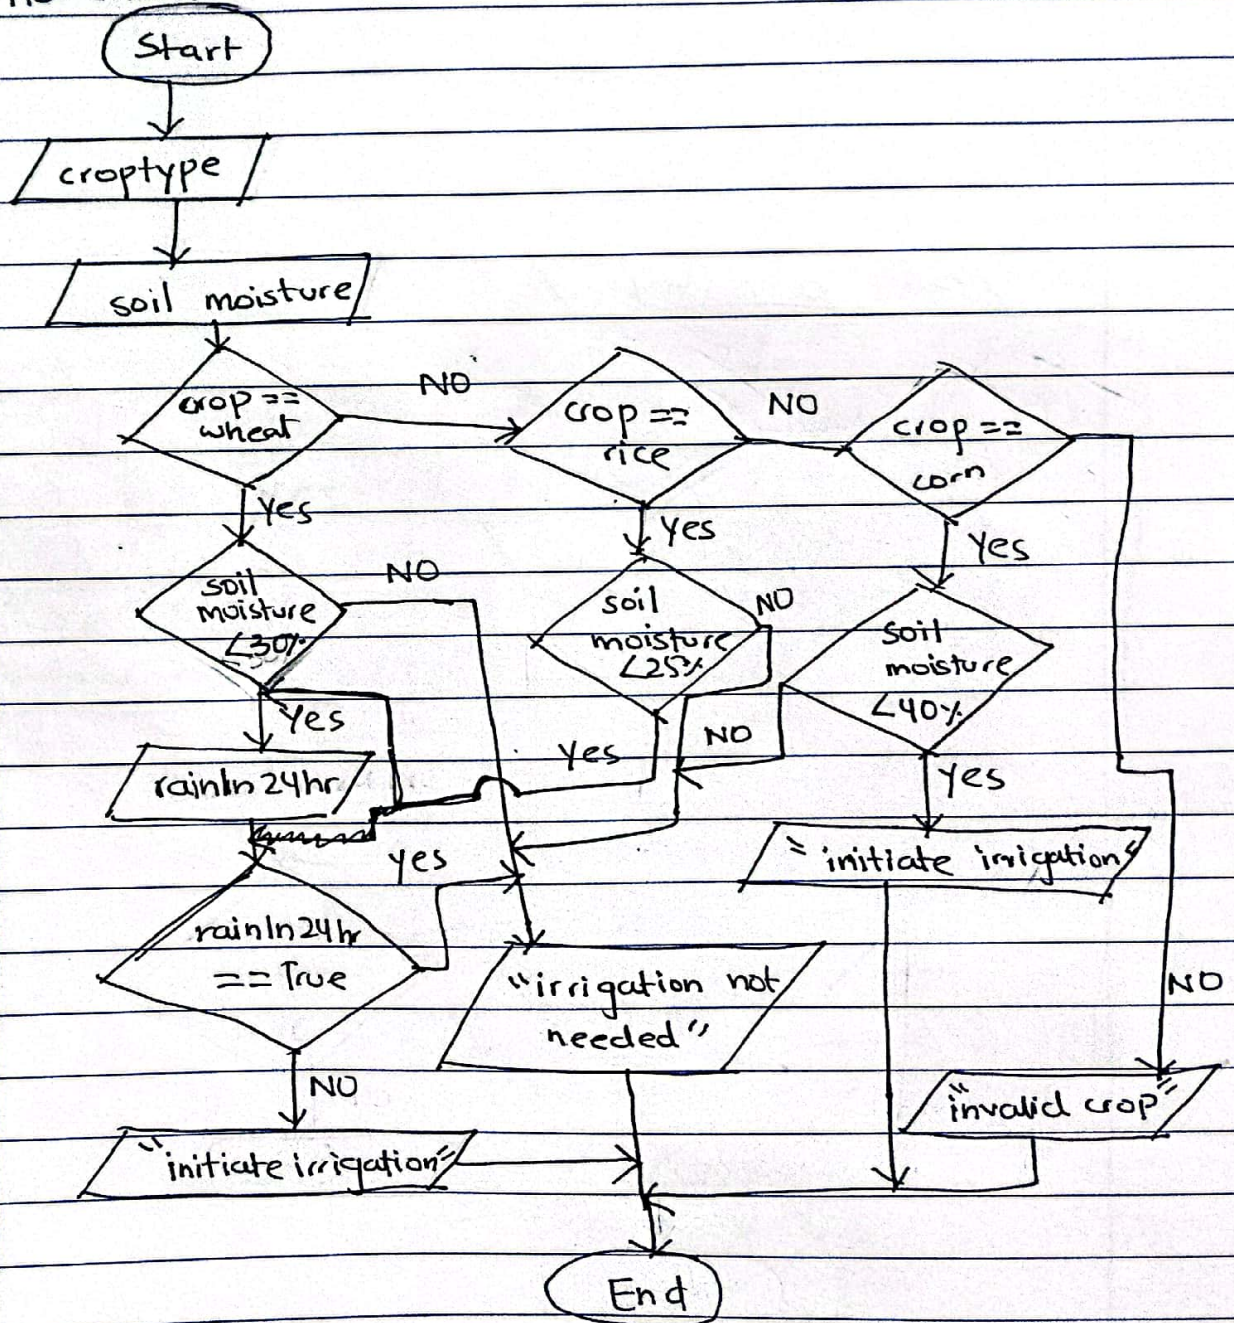 Start
croptype
soil moisture
crop ==
wheat
NO
crop ==
rice
NO
crop ==
corn
Yes
Yes
Yes
soil
moisture
<30%
NO
soil
moisture
<25%
NO
soil
moisture
<40%
Yes
Yes
NO
Yes
rainIn24hr
Yes
"initiate irrigation"
rainIn24hr
== True
"irrigation not
needed"
NO
NO
"initiate irrigation"
"invalid crop"
End